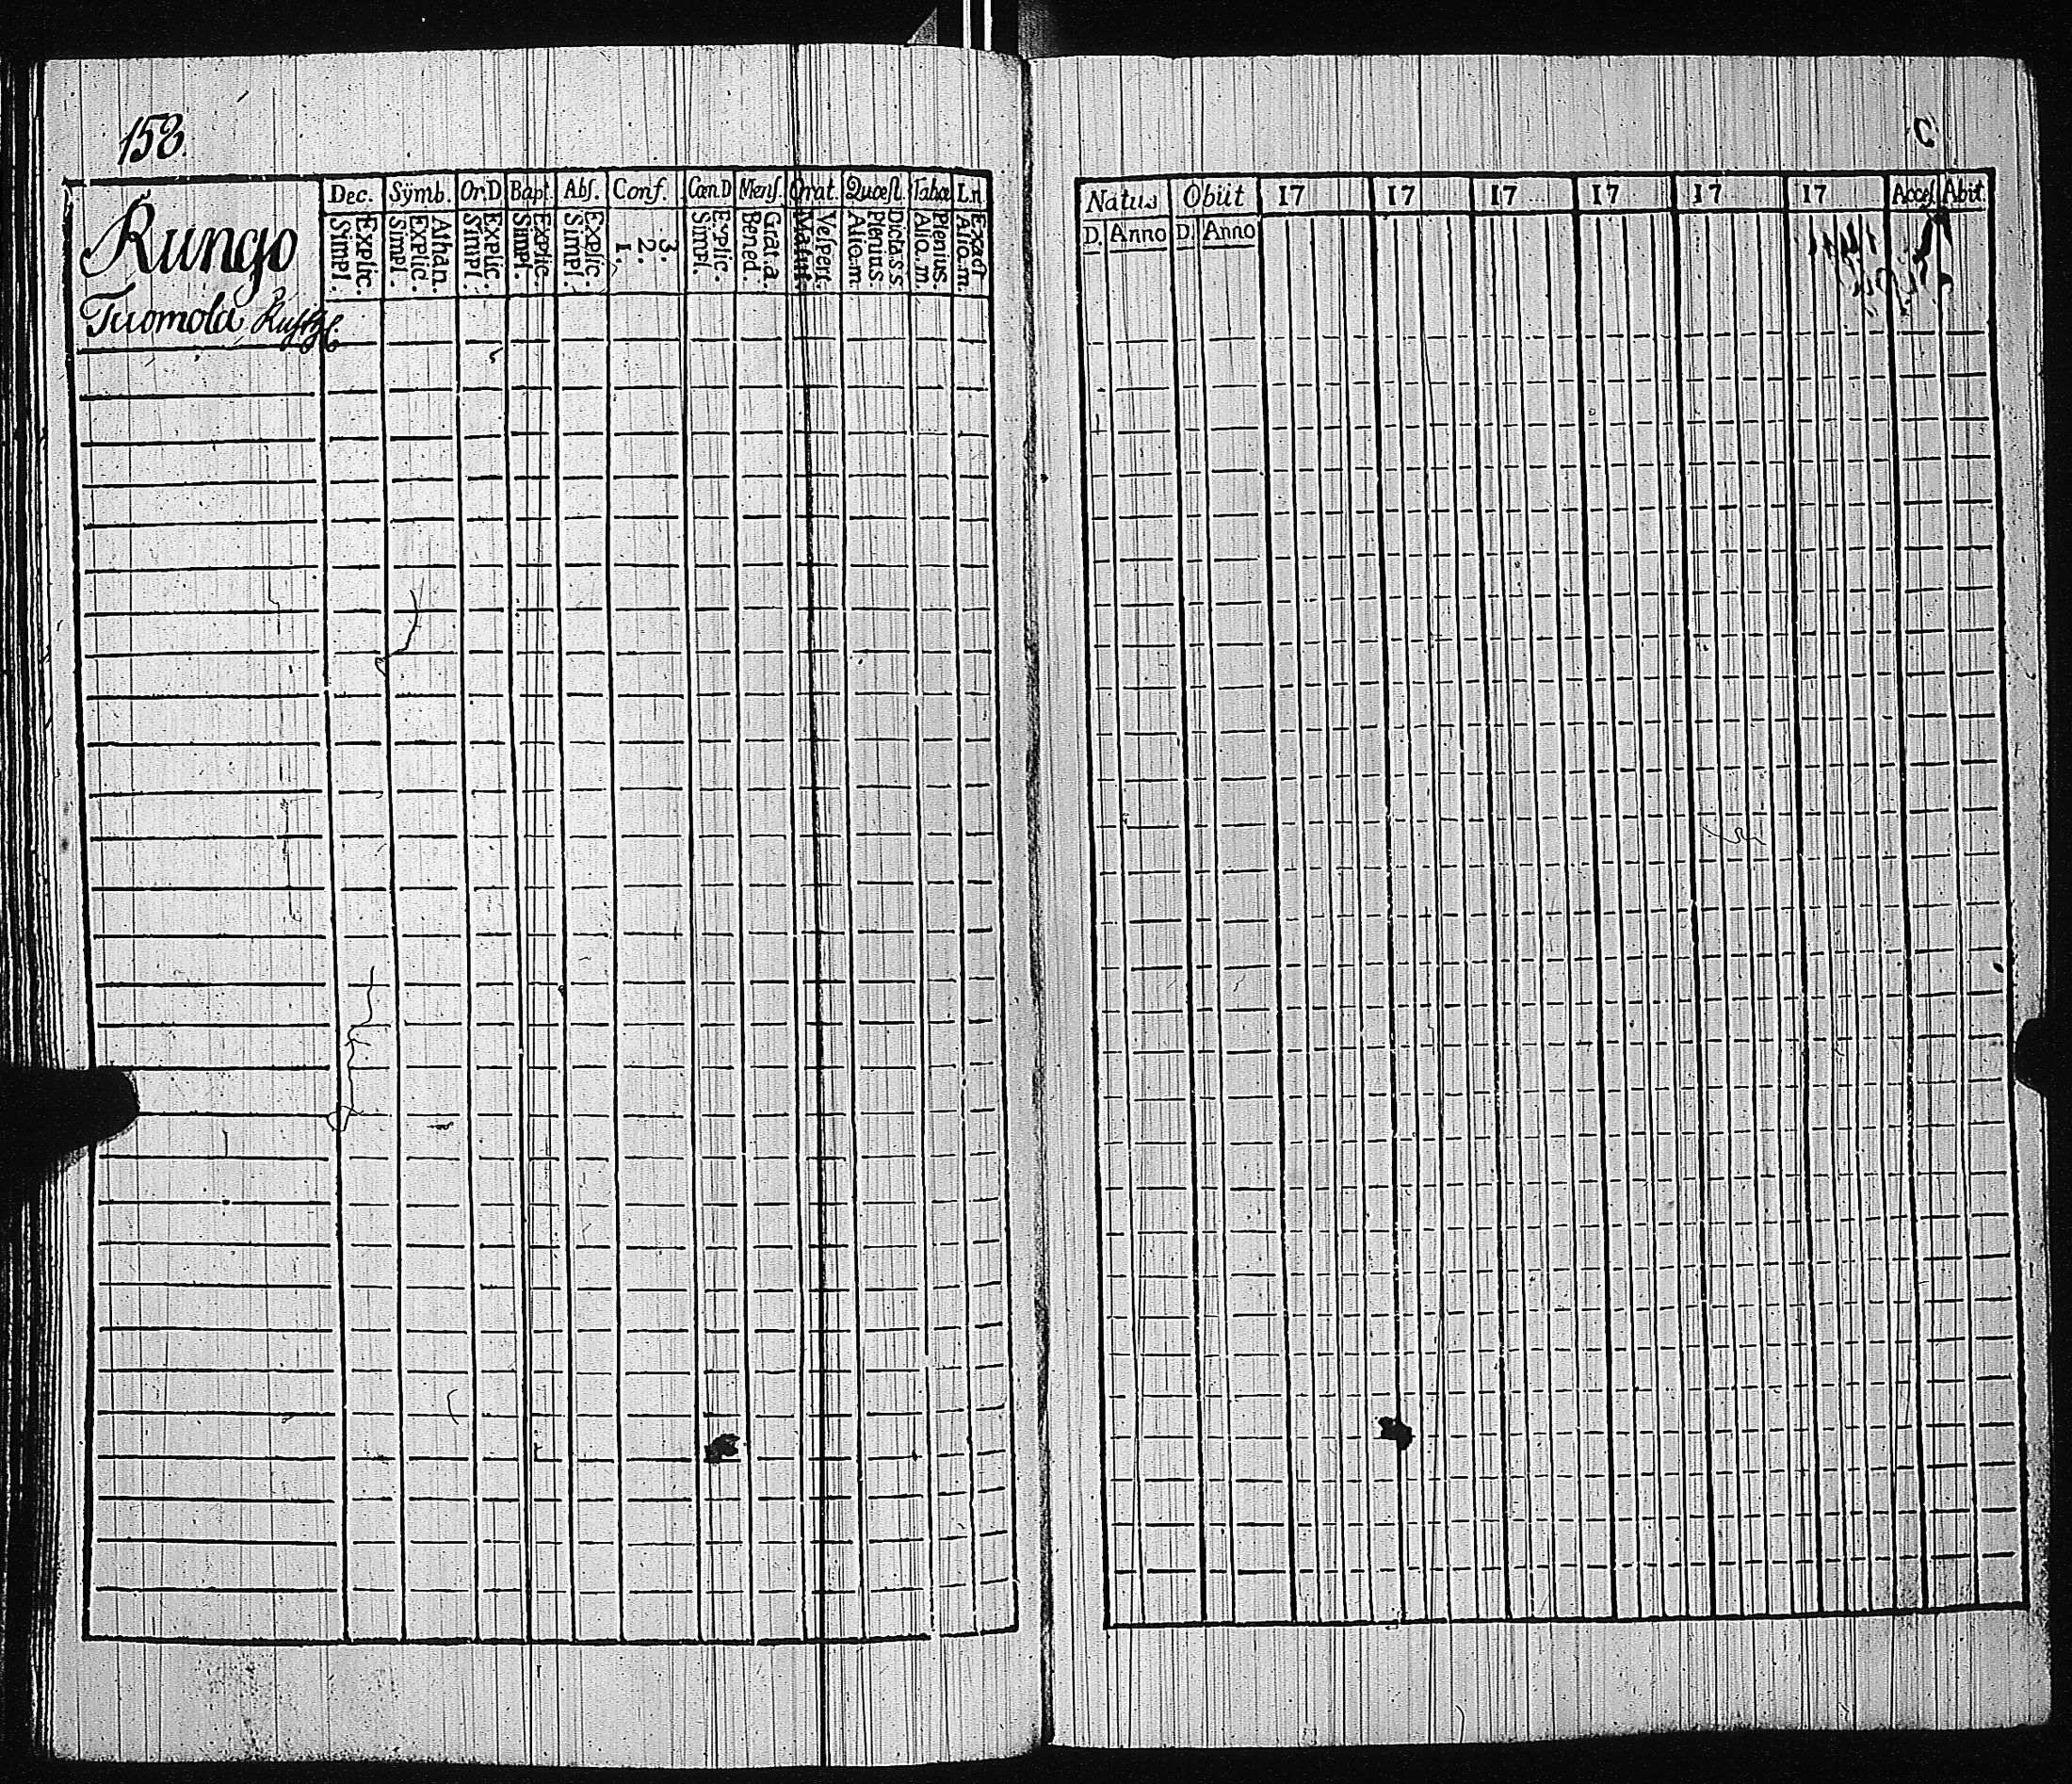 158.
Dec. Sÿmb. Or.D Bapt. Abs. Conf. Cœn.D Mens. Orat. Quæst. Tabæ L.n
Rungo
Simpl. Explic. Simpl. Explic. Athan. Simpl. Explic. Simpl. Explic. Simpl. Explic. 1. 2. 3. Simpl. Explic. Bened. Grat.a. Matut. Vespert. Alio.m. Plenius. Dicta.s.s Alio.m. Plenius. Alio.m. Exact
Tuomola
C
Natus Obiit 17 17 17 17 17 17 Acces. Abit.
D. Anno D. Anno